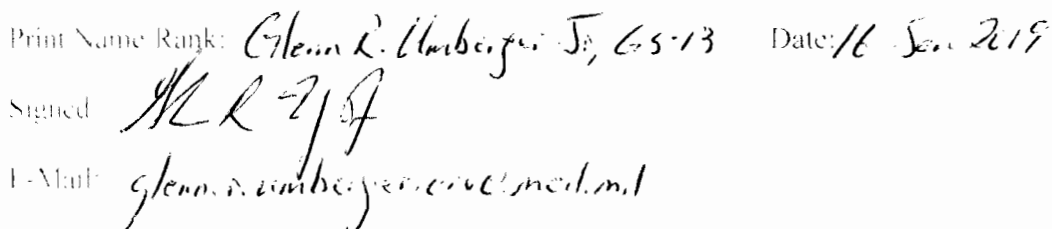 Print Name Rank: Glenn R. Umberger Jr, GS-13 Date: 16 Jan 2019
Signed
E-Mail: glenn.r.umberger.civ@mail.mil